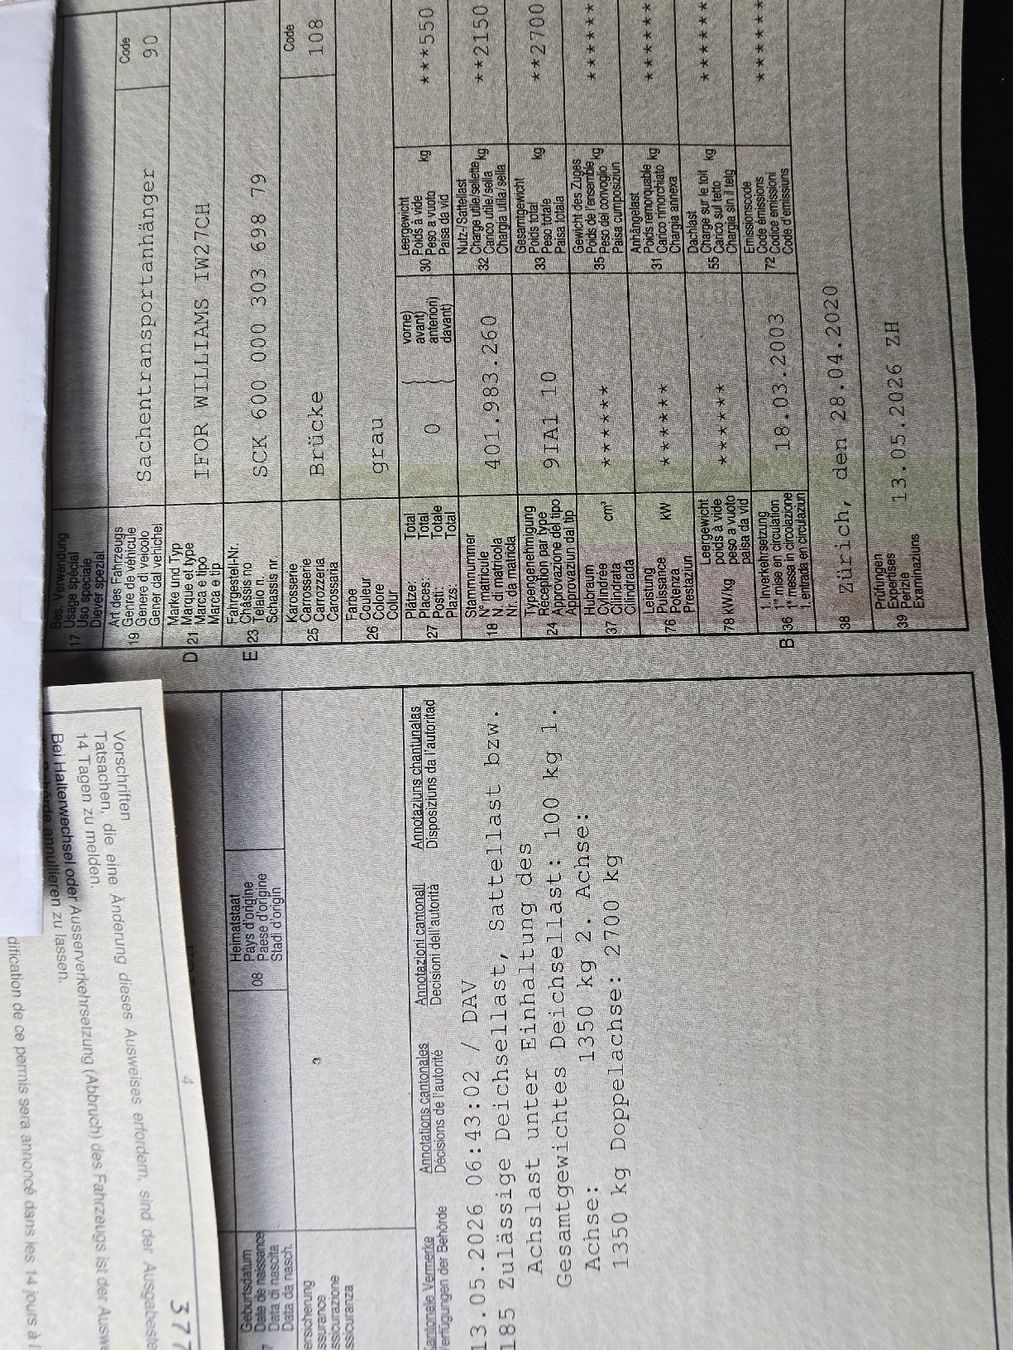 Vorschriften
Tatsachen, die eine Änderung dieses Ausweises erfordern, sind der
14 Tagen zu melden.
Bei Halterwechsel oder Ausserverkehrsetzung (Abbruch) des Fahrzeugs ist der
annullieren zu lassen.
dification de ce permis sera annoncé dans les 14 jours à l
4
377
Geburtsdatum
Date de naissance
Data di nascita
Data da nasch.
08 Heimatstaat
Pays d'origine
Paese d'origine
Stadi d'origin
ersicherung
ssurance
ssicurazione
ssicuranza
antonale Vermerke
erfügungen der Behörde
Annotations cantonales
Décisions de l'autorité
Annotazioni cantonali
Decisioni dell'autorità
Annotaziuns chantunalas
Disposiziuns da l'autoritad
13.05.2026 06:43:02 / DAV
185 Zulässige Deichsellast, Sattellast bzw.
Achslast unter Einhaltung des
Gesamtgewichtes Deichsellast: 100 kg 1.
Achse: 1350 kg 2. Achse:
1350 kg Doppelachse: 2700 kg
17 Bes. Verwendung
Usage spécial
Uso speciale
Diever spezial
19 Art des Fahrzeugs
Genre de véhicule
Genere di veicolo
Gener dal vehichel
Sachentransportanhänger
Code
90
D 21 Marke und Typ
Marque et type
Marca e tipo
Marca e tip
IFOR WILLIAMS IW27CH
E 23 Fahrgestell-Nr.
Châssis no
Telaio n.
Schassis nr.
SCK 600 000 303 698 79
25 Karosserie
Carrosserie
Carrozzeria
Carossaria
Brücke
Code
108
26 Farbe
Couleur
Colore
Colur
grau
27 Plätze: Total
Places: Total
Posti: Totale
Plazs: Total
0
vorne)
avant)
anteriori)
davant)
30 Leergewicht
Poids à vide
Peso a vuoto
Paisa da vid
kg
***550
18 Stammnummer
N° matricule
N. di matricola
Nr. da matricla
401.983.260
32 Nutz-/Sattellast
Charge utile/sellette
Carico utile/sella
Chargia utila/sella
kg
**2150
24 Typengenehmigung
Réception par type
Approvazione del tipo
Approvaziun dal tip
9IA1 10
33 Gesamtgewicht
Poids total
Peso totale
Paisa totala
kg
**2700
37 Hubraum
Cylindrée
Cilindrata
Cilindrada
cm³
******
35 Gewicht des Zuges
Poids de l'ensemble
Peso del convoglio
Paisa cumposiziun
kg
******
76 Leistung
Puissance
Potenza
Prestaziun
kW
******
31 Anhängelast
Poids remorquable
Carico rimorchiato
Chargia annexa
kg
******
78 kW/kg Leergewicht
poids à vide
peso a vuoto
paisa da vid
******
55 Dachlast
Charge sur le toit
Carico sul tetto
Chargia sin il tetg
kg
******
B 36 1. Inverkehrsetzung
1re mise en circulation
1a messa in circolazione
1. entrada en circulaziun
18.03.2003
72 Emissionscode
Code émissions
Codice emissioni
Code d'emissiuns
******
38 Zürich, den 28.04.2020
39 Prüfungen
Expertises
Perizie
Examinaziuns
13.05.2026 ZH